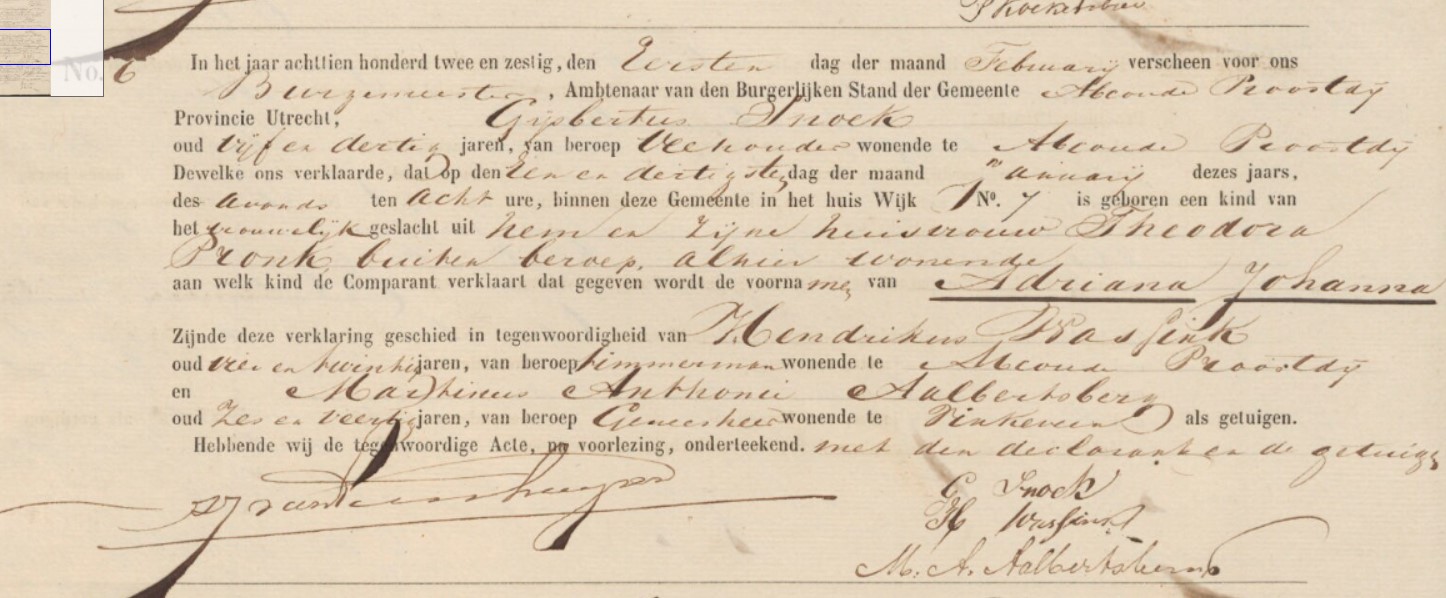 No. 6
In het jaar achttien honderd twee en zestig, den Eersten dag der maand February verscheen voor ons
Burgemeester, Ambtenaar van den Burgerlijken Stand der Gemeente Abcoude Proostdy
Provincie Utrecht, Gijsbertus Snoek
oud vijf en dertig jaren, van beroep Veehouder wonende te Abcoude Proostdy
Dewelke ons verklaarde, dat op den Een en dertigsten dag der maand January dezes jaars,
des avonds ten acht ure, binnen deze Gemeente in het huis Wijk 1 No. 7 is geboren een kind van
het vrouwelijk geslacht uit hem en zijne huisvrouw Theodora
Pronk, buiten beroep, alhier wonende
aan welk kind de Comparant verklaart dat gegeven wordt de voornamen van Adriana Johanna
Zijnde deze verklaring geschied in tegenwoordigheid van Hendrikus
oud vier en twintig jaren, van beroep timmerman wonende te Abcoude Proostdy
en Martinus Anthonie Aalbertsberg
oud Zes en Veertig jaren, van beroep Geneesheer wonende te Vinkeveen als getuigen.
Hebbende wij de tegenwoordige Acte, na voorlezing, onderteekend. met den declarant en de getuigen
G Snoek
H
M. A. Aalbertsberg